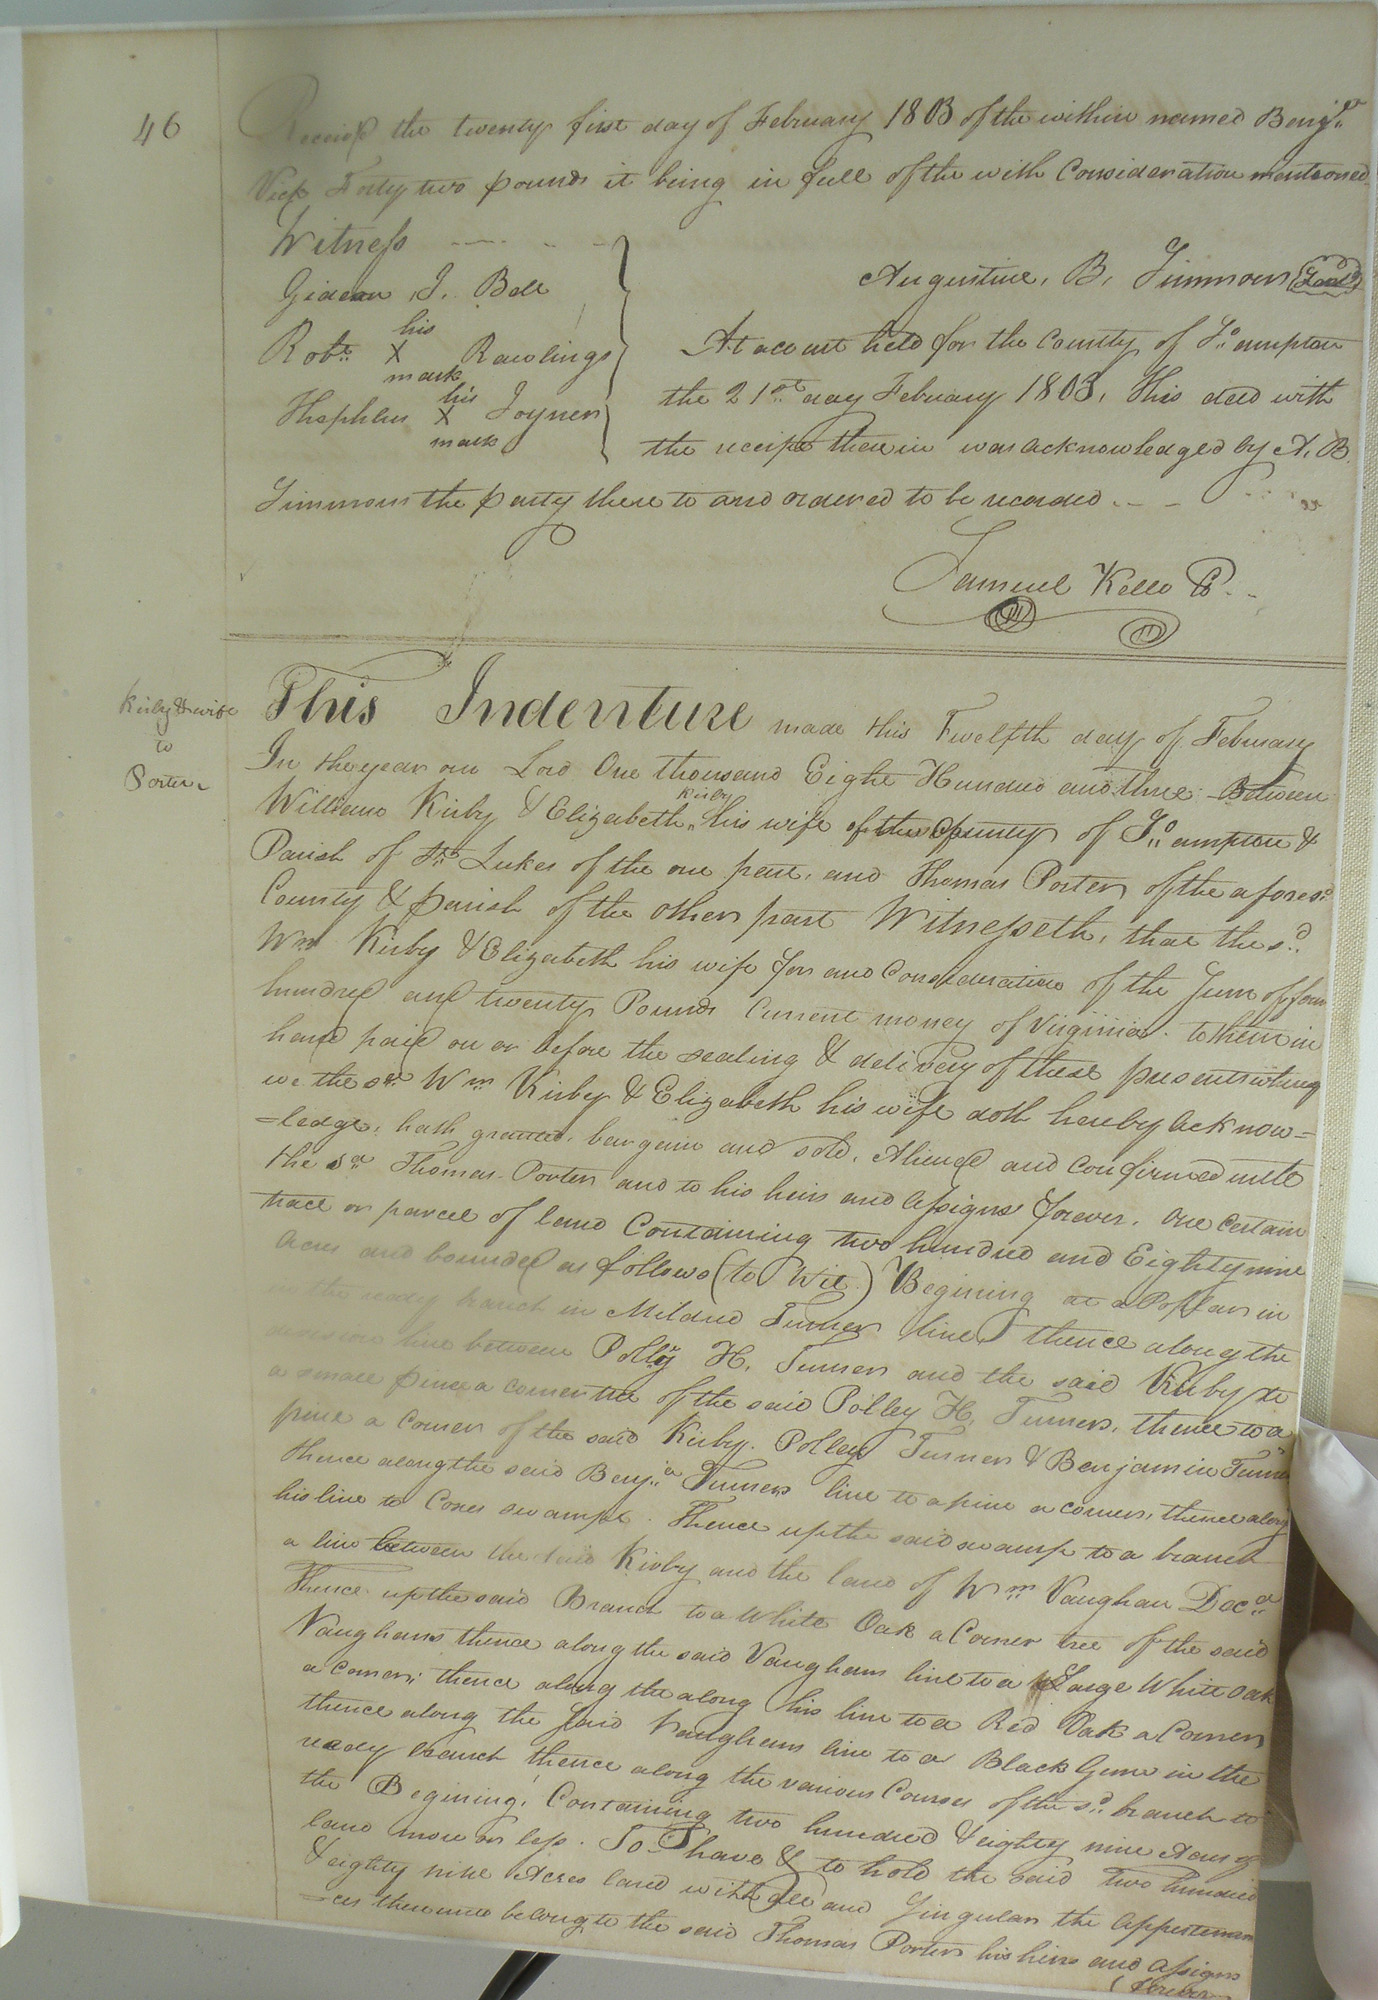 46
Receiv'd the twenty first day of February 1803 of the within named Benj.a
Vick Forty two pounds it being in full of the with Consideration mentioned
Witness
Augustine. B. Simmons (Seal)
Gideon J. Bell
Rob.t his X mark Rawlings
Thephlus his X mark Joyner
At a court held for the County of S.o ampton
the 21.st day February 1803. This deed with
the receipt there in was acknowledged by A. B.
Simmons the party there to and ordered to be recorded
Samuel Kello Co.
Kirby & wife
to
Porter
This Indenture made this Twelfth day of February
In the year our Lord One thousand Eight Hundred and three Between
William Kirby & Elizabeth Kirby his wife of the County of S.o ampton &
Parish of St. Lukes of the one part, and Thomas Porter of the afores.d
County & parish of the other part Witnesseth, that the s.d
Wm Kirby & Elizabeth his wife for and Consideration of the Sum of four
hundred and twenty Pounds Current money of Virginia. to them in
hand paid on or before the sealing & delivery of these presents
we the s.d Wm Kirby & Elizabeth his wife doth hereby acknow=
=ledge, hath granted, bargain and sold, Aliened and Confirmed unto
the s.d Thomas Porter and to his heirs and assigns forever. One Certain
trace or parcel of land Containing two hundred and Eighty nine
Acres and bounded as follows (to Wit) Begining at a Poplar in
the ready branch in Mildred Turner line, thence along the
line between Polly H. Turner and the said Kirby to
a small pine a corner tree of the said Polley H. Turners, thence to a
pine a Corner of the said Kirby. Polley Turner & Benjamin Turner
thence along the said Benj.a Turners line to a pine a corner, thence along
his line to Coxes swamp. Thence up the said swamp to a branch
a line between the said Kirby and the land of Wm Vaughan Dec.d
Thence up the said Branch to a White Oak a Corner tree of the said
Vaughans thence along the said Vaughans line to a Large White Oak
a corner; thence along the along his line to a Red Oak a Corner
thence along the said Vaughans line to a Black Gum in the
ready branch thence along the various Courses of the s.d branch to
the Begining, Containing two hundred & eighty nine Acres of
land more or less. To have & to hold the said Two hundred
& eighty nine Acres land with all and Singular the appurtenan
=ces thereunto belong to the said Thomas Porter his heirs and assigns
forever